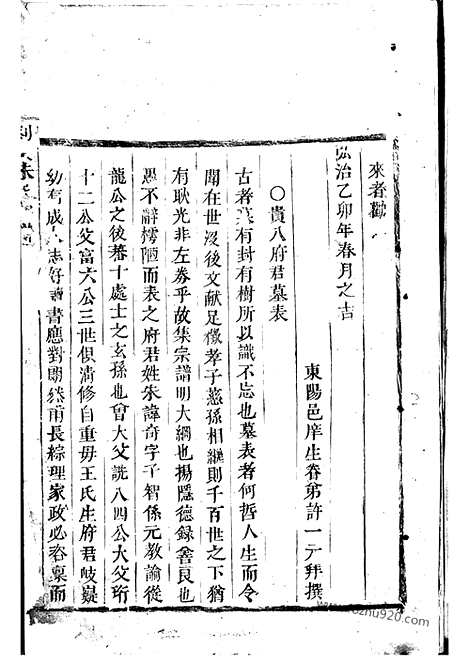 來者勸
弘治乙卯年春月之吉
東陽邑庠生眷弟許一元拜撰
○貴八府君墓表
古者墓有封有樹所以識不忘也墓表者何哲人生而令
聞在世沒後文獻足徵孝子慈孫相繼則千百世之下猶
有耿光非左券乎故集宗譜明大綱也揚隱德錄善良也
愚不辭樗陋而表之府君姓朱諱奇字子智係元教諭從
龍公之後蕃十處士之玄孫也會大父諱八四公大父珩
十二公父富六公三世俱清修自重毋王氏生府君岐嶷
幼有成人志好讀書應對朗然甫長綜理家政必咨稟而
ozhu920.com